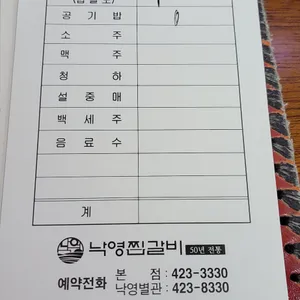 공기밥
소주
맥주
청하
설중매
백세주
음료수
계
낙영찜갈비 50년 전통
예약전화 본점 : 423-3330
낙영별관 : 423-8330